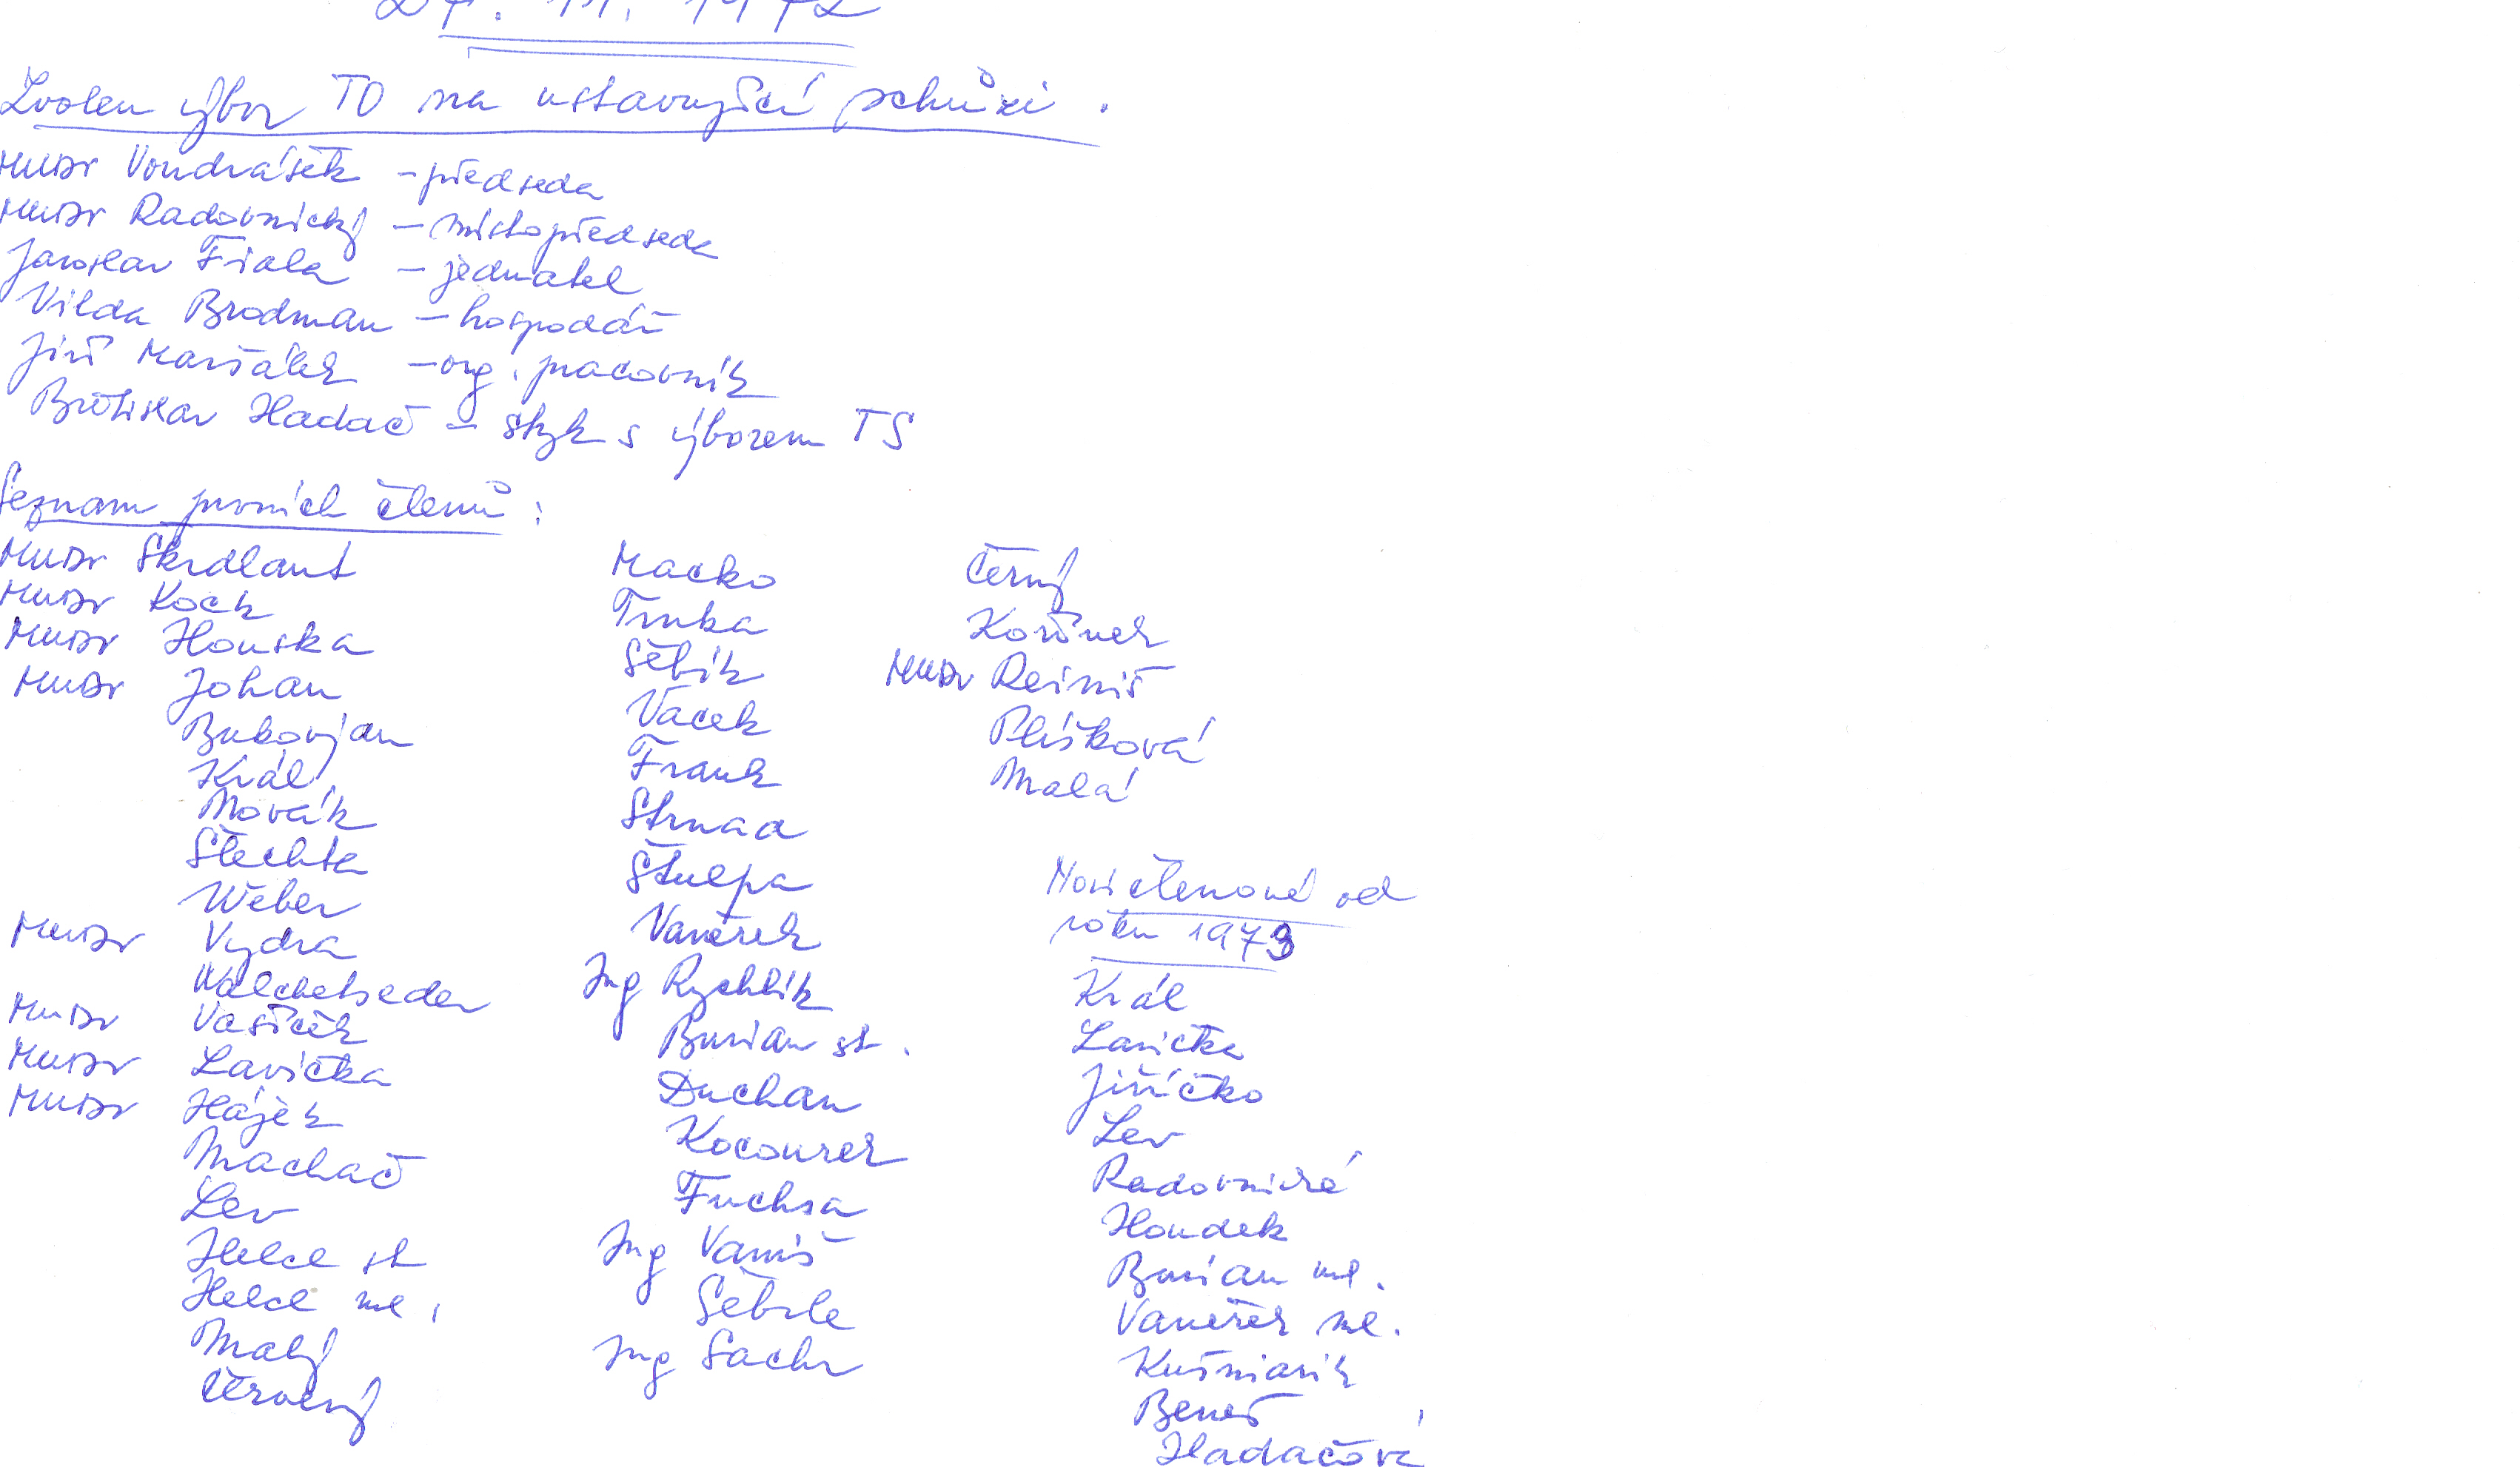 27. 11. 1972
Zvolen výbor TO na ustavující schůzi.
MUDr Vondrášek - předseda
MUDr Radovnický - místopředseda
Jaroslav Fiala - jednatel
Vilda Brodman - hospodář
Jiří Maršálek - org. pracovník
Břetislav Hadač - styk s výborem TS
Seznam prvních členů:
MUDr Škrdlant
MUDr Koch
MUDr Houska
MUDr Johan
Bukovjan
Král
Novák
Šlechta
Weber
MUDr Vydra
Walchetseder
MUDr Vašíček
MUDr Lavička
MUDr Hájek
Machač
Lev
Helcl st
Helcl ml.
Malý
Červený
Macko
Trnka
Štěbík
Vacek
Frank
Strnad
Štulpa
Vaněrek
Ing Rychlík
Burian st.
Duchan
Kocourek
Fuchsa
Ing Vaniš
Šebrle
Ing Šachr
Černý
Kořínek
MUDr Reiniš
Plíšková
Malá
Noví členové od
roku 1973
Král
Lavička
Jiříčko
Lev
Radovnická
Houdek
Burian ml.
Vaněrek ml.
Kušniarik
Beneš
Hadačová